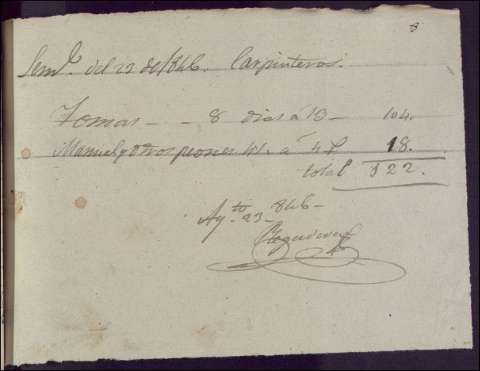 8
Sem.ª del 23 de 1846. Carpinteros.
Tomas - - 8 dias á 13 - 104.
Manuel y otros peones á 4 p 18.
total 122.
Ag.to 23 - 846 -